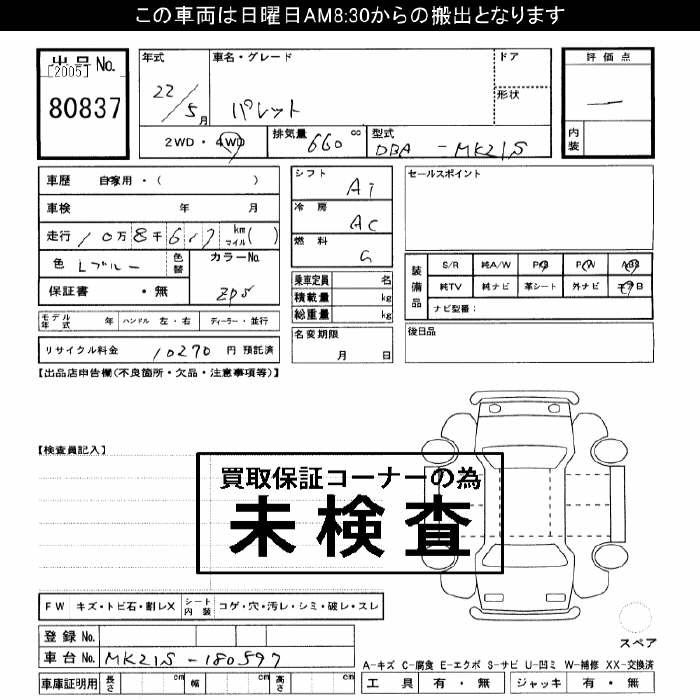 この車両は日曜日AM8:30からの搬出となります
出品No.
[2005]
80837
年式
22/5月
車名・グレード
パレット
ドア
形状
評価点
—
内装
2WD・4WD
排気量 660 cc
型式 DBA - MK21S
車歴 自家用・( )
車検 年 月
走行 10万8千617 km マイル( )
色 Lブルー 色替
カラーNo. ZP5
保証書 ・無
モデル年式 年 ハンドル 左・右 ディーラー・並行
リサイクル料金 10270 円 預託済
シフト AT
冷房 AC
燃料 G
乗車定員 名
積載量 kg
総重量 kg
名変期限
月 日
セールスポイント
装備品
S/R 純A/W P/S P/W ABS
純TV 純ナビ 革シート 外ナビ エアB
ナビ型番:
後日品
【出品店申告欄(不良箇所・欠品・注意事項等)】
【検査員記入】
買取保証コーナーの為
未検査
FW キズ・トビ石・割レX シート内装 コゲ・穴・汚レ・シミ・破レ・スレ
登録No.
車台No. MK21S - 180597
車庫証明用 長さ cm 幅 cm 高さ cm
スペア
A-キズ C-腐食 E-エクボ S-サビ U-凹ミ W-補修 XX-交換済
工具 有・無 ジャッキ 有・無